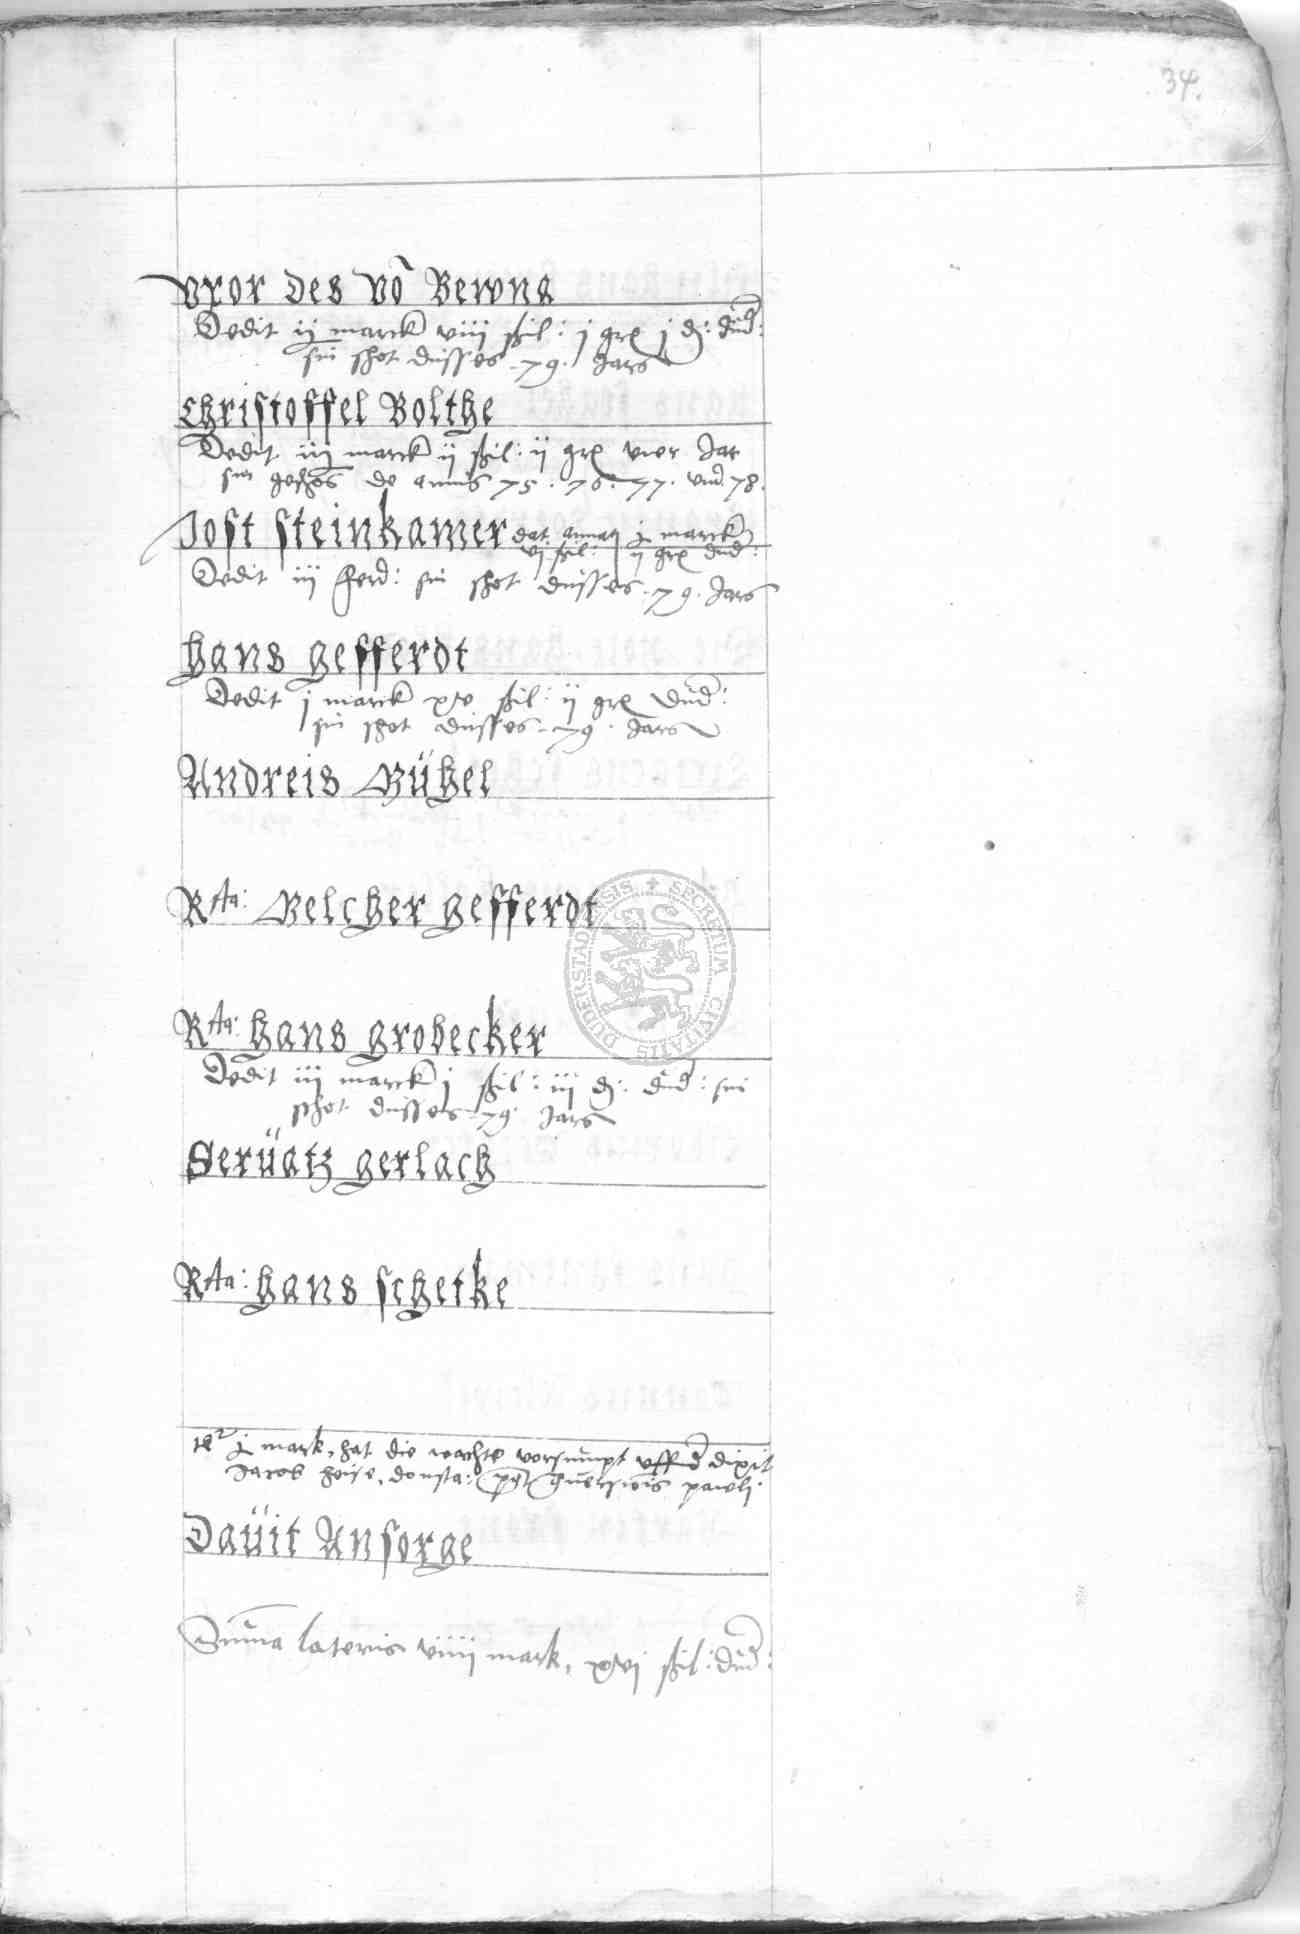 34.
Vxor des Võ Bewna
Dedit ij marck viiij ßil: j grę j ₰: dud:
sui schot dusses .79. Jars
Christoffel Bolthe
Dedit iij marck ij ßil: ij grę vier Jar
sin geschos de annis 75. 76. 77. vnd 78.
Jost steinkamer dat j marck
vj ßil: ij grę dud:
Dedit iij ferd: sui schot dusses .79. Jars
Hans Gefferdt
Dedit j marck xv ßil: ij grę Dud:
sui schot dusses .79. Jars
Andreis
Rta: Melcher Gefferdt
Rta: Hans Grobecker
Dedit iij marck j ßil: iij ₰: dud: sui
schot dusses .79. Jars
Seruatz Gerlach
Rta: Hans schetke
j mark, hat die wachte vorsumpt dixit
Jacob heise, donsta: pauli
Dauit Ansorge
Summa lateris viiij mark, xvj ßil: dud:
SECRETUM CIVITATIS DUDERSTADENSIS